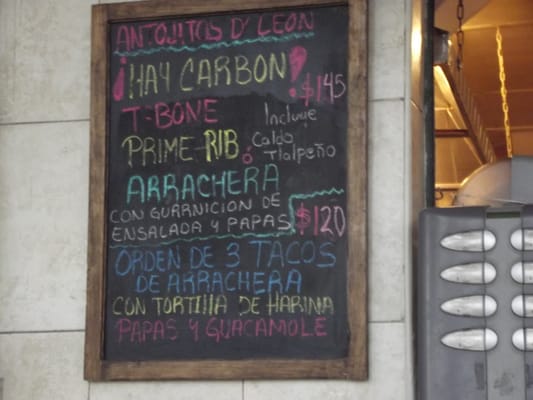 ANTOJITOS D' LEON
¡HAY CARBON!
$145
T-BONE
PRIME RIB ó
Incluye
Caldo
Tlalpeño
ARRACHERA
CON GURRNICION DE
ENSALADA Y PAPAS $120
ORDEN DE 3 TACOS
DE ARRACHERA
CON TORTILLA DE HARINA
PAPAS Y GUACAMOLE